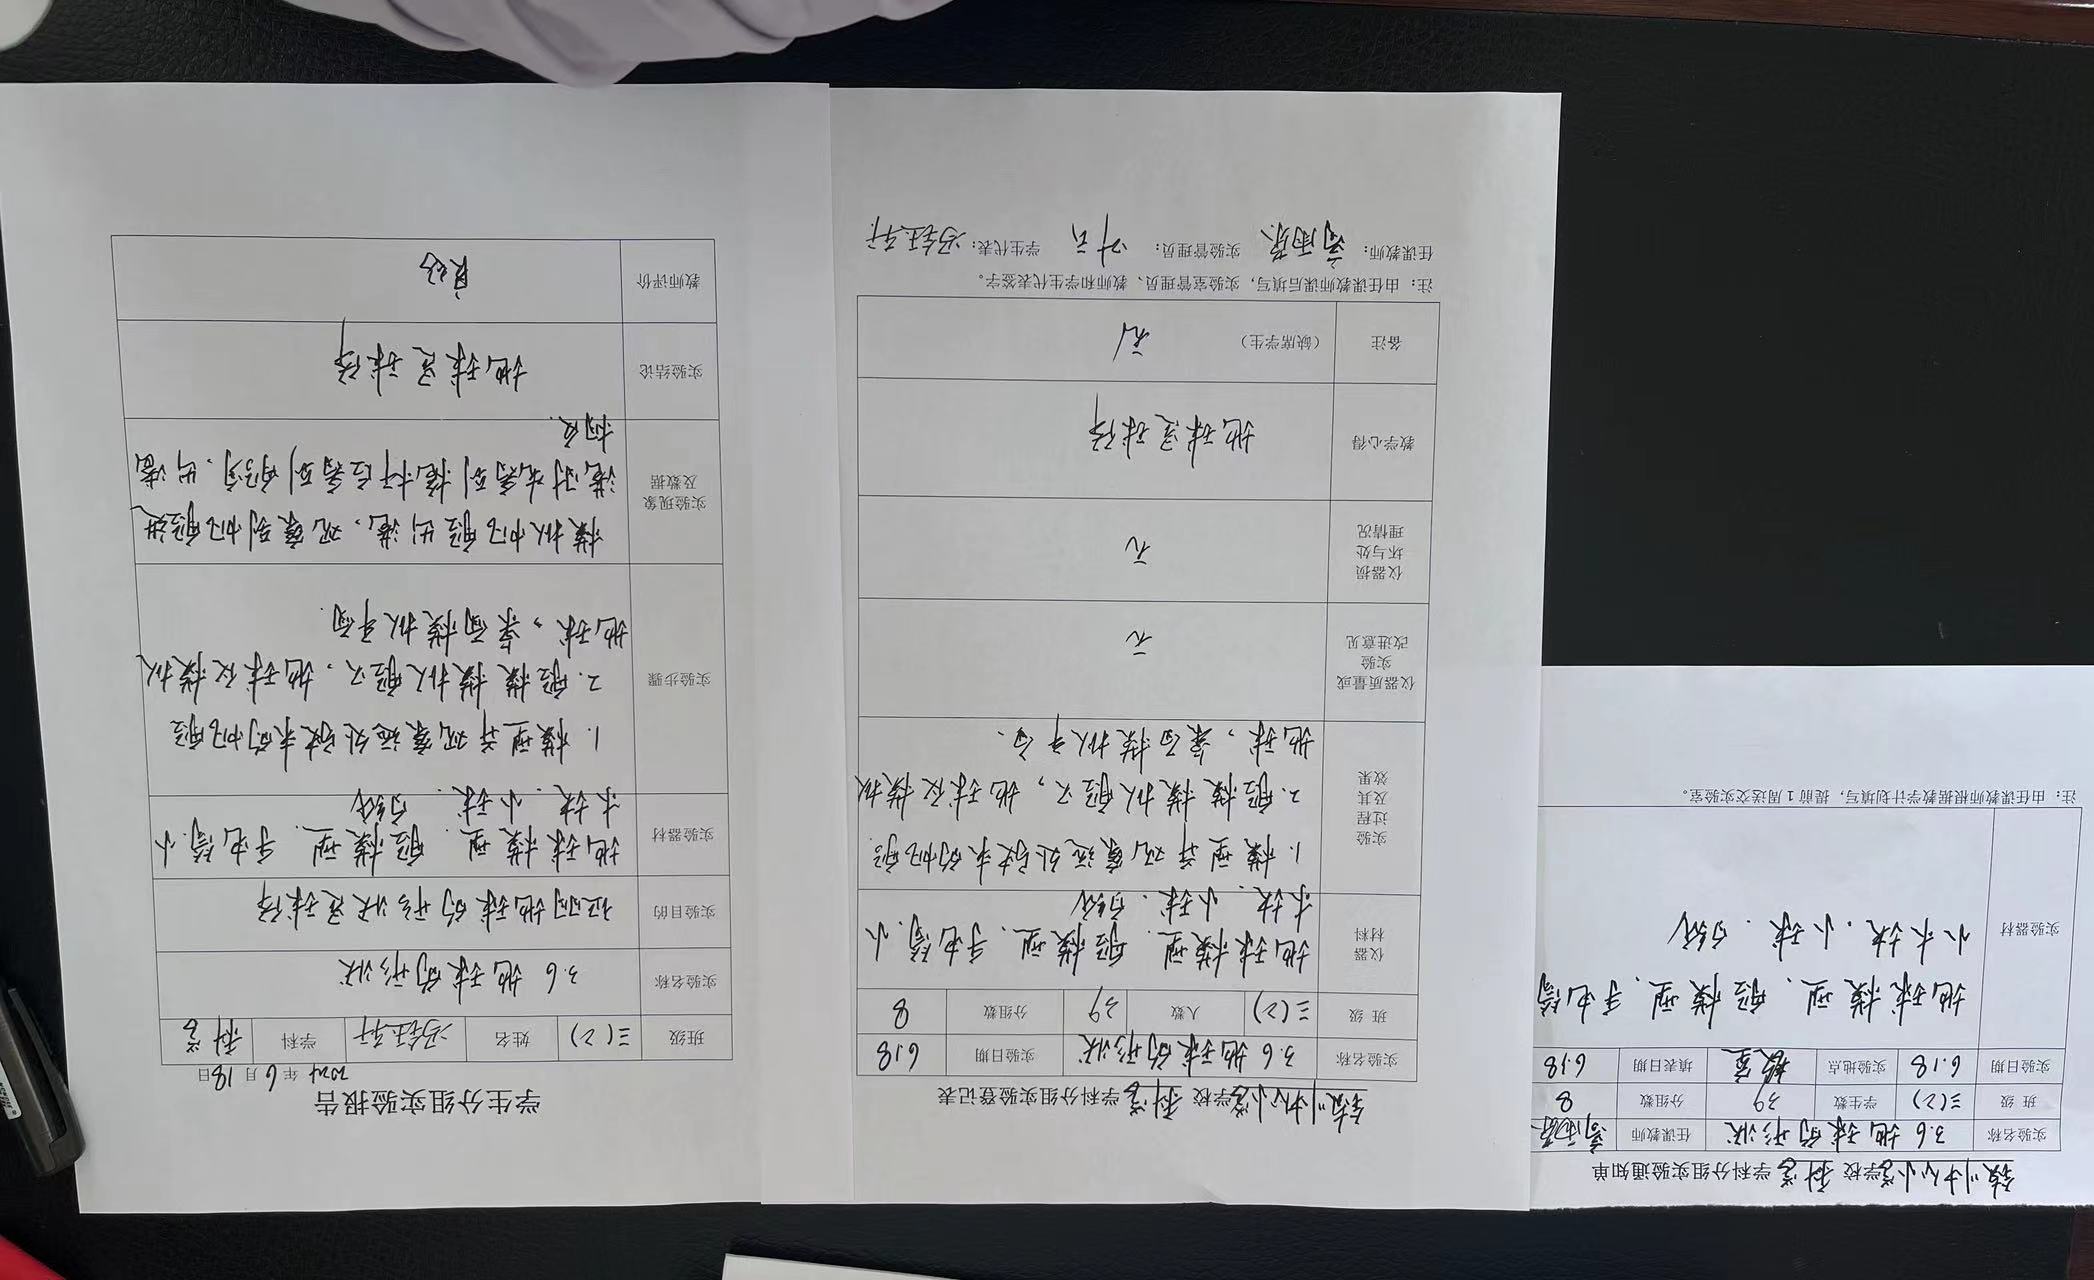 学科分组实验通知单
实验名称 3.6 地球的形状 任课教师
班 级 三(2) 学生数 39 分组数 8
实验日期 6.18 实验地点 教室 填表日期 6.18
实验器材 地球模型、船模型、手电筒
小木块、小球、白纸
注：由任课教师根据教学计划填写，提前1周送交实验室。
学校 科学 学科分组实验登记表
实验名称 3.6 地球的形状 实验日期 6.18
班 级 三(2) 人数 39 分组数 8
仪器材料 地球模型、船模型、手电筒、小
木块、小球、白纸
实验过程及其效果 1. 模型并观察远处驶来的帆船
2. 船模模拟船只，地球仪模拟
地球，桌面模拟平面.
仪器质量或实验改进意见 无
仪器损坏与处理情况 无
教学心得 地球是球体
备注 (缺席学生) 无
注：由任课教师课后填写，实验室管理员、教师和学生代表签字。
任课教师： 实验管理员：叶云 学生代表：冯钰轩
学生分组实验报告
2024年6月18日
班级 三(2) 姓名 冯钰轩 学科 科学
实验名称 3.6 地球的形状
实验目的 证明地球的形状是球体
实验器材 地球模型、船模型、手电筒、小
木块、小球、白纸
实验步骤 1. 模型并观察远处驶来的帆船
2. 船模模拟船只，地球仪模拟
地球，桌面模拟平面.
实验现象及数据 模拟帆船出港，观察到帆船进
港时先看到桅杆后看到船身，出港
相反.
实验结论 地球是球体
教师评价 良好